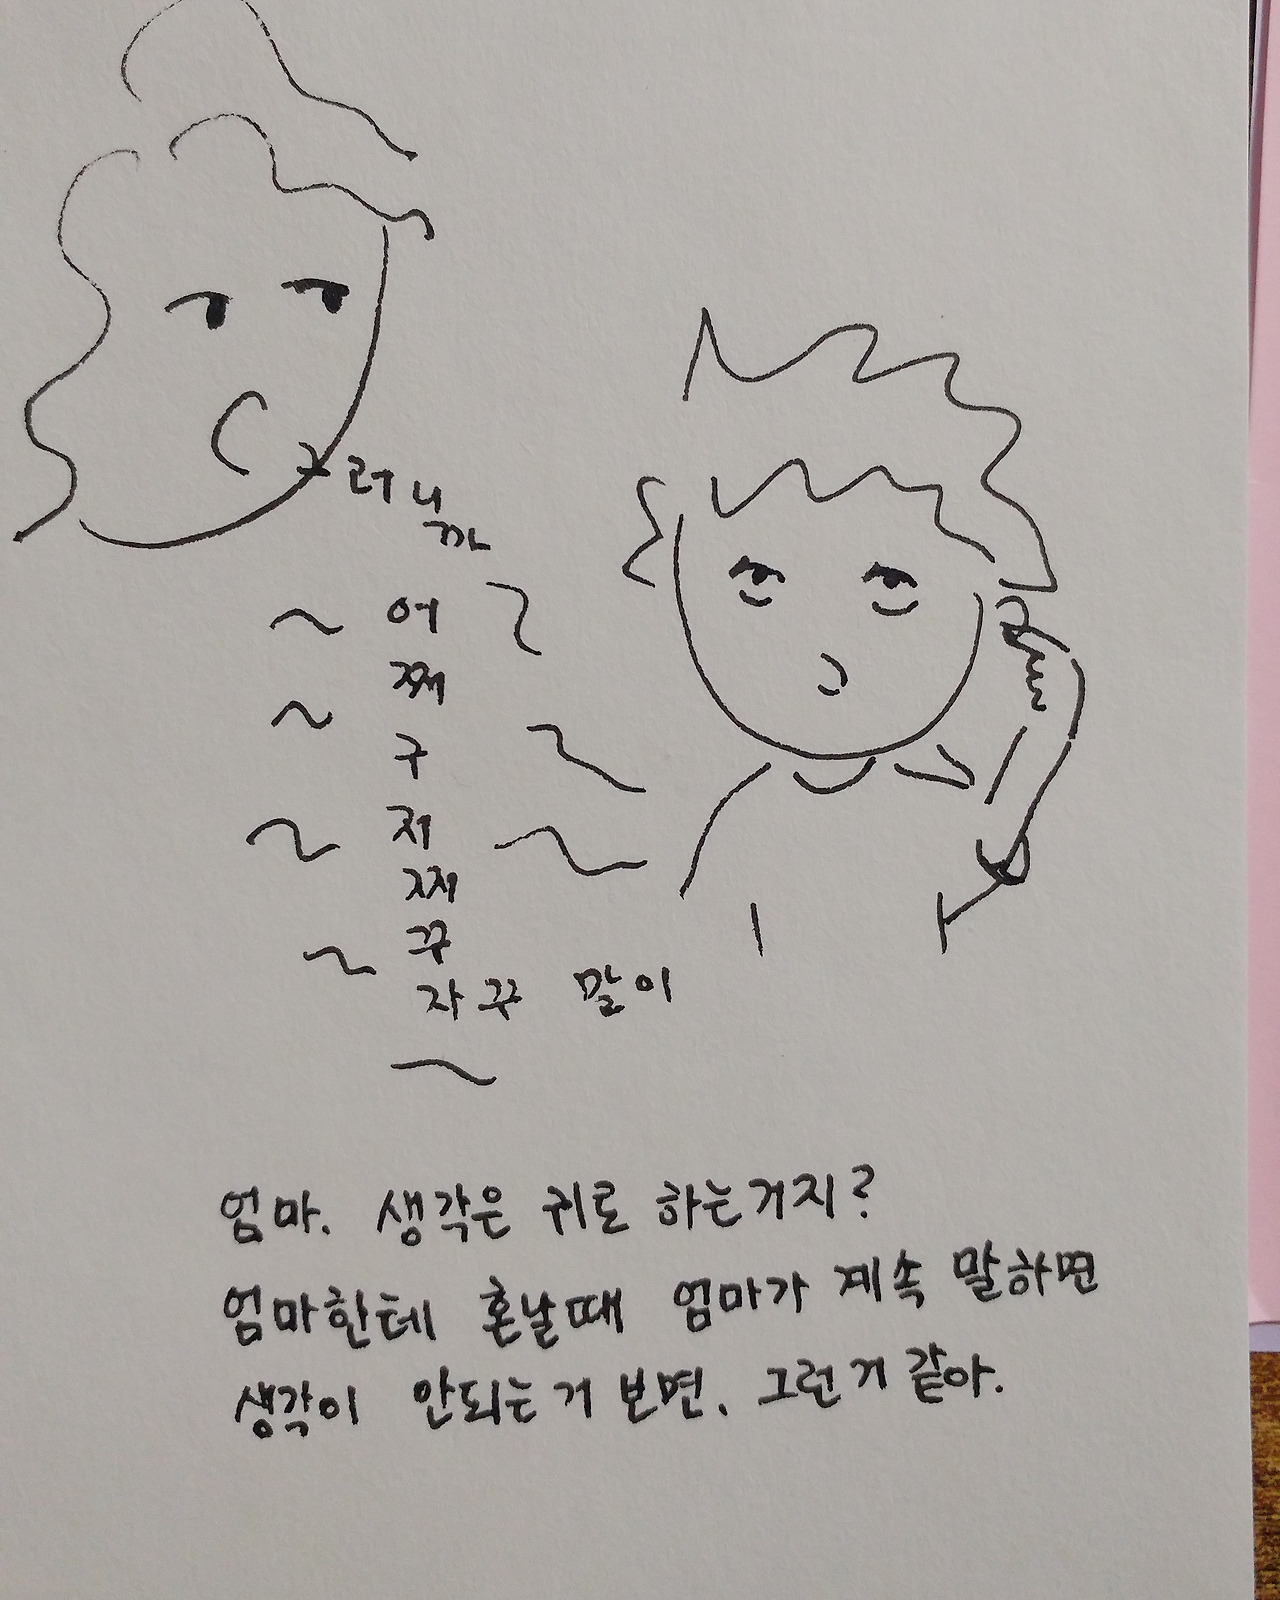 그러니
까
어
쩌
구
저
쩌
꾸
자꾸 말이
엄마. 생각은 귀로 하는거지?
엄마한테 혼날때 엄마가 계속 말하면
생각이 안되는거 보면. 그런거 같아.